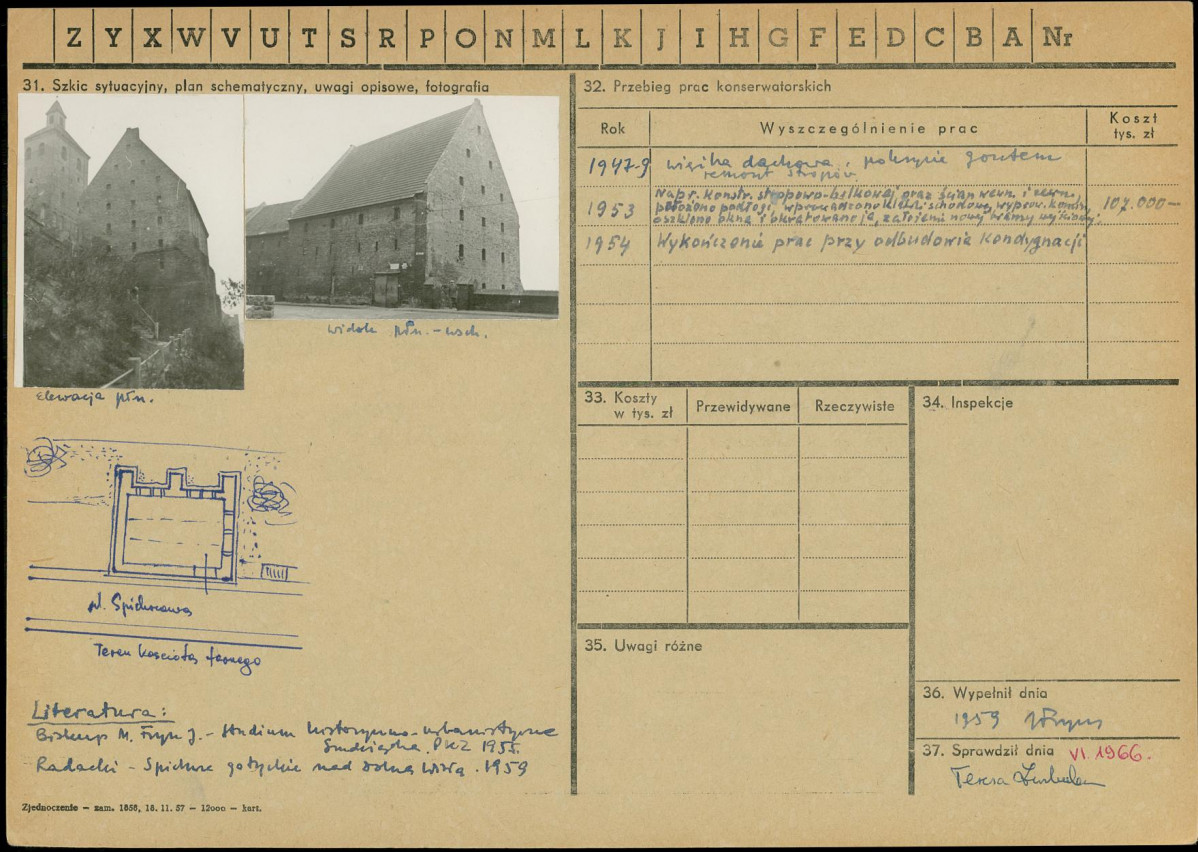 Z Y X W V U T S R P O N M L K J I H G F E D C B A Nr
31. Szkic sytuacyjny, plan schematyczny, uwagi opisowe, fotografia
widok płn.-wsch.
elewacja płn.
ul. Spichrzowa
Teren kościoła farnego
Literatura:
Biskup M. Fryn J. - Studium historyczno-urbanistyczne
Grudziądza. PKZ 1955.
Radacki - Spichrze gotyckie nad dolną Wisłą. 1959
Zjednoczenie — zam. 1858, 18. 11. 57 — 12000 — kart.
32. Przebieg prac konserwatorskich
Rok
Wyszczególnienie prac
Koszt
tys. zł
1947-9 więźba dachowa, pokrycie gontem
remont stropów
Napr. konstr. stropowo-belkowej oraz ścian wewn. i zewn.
1953 położono podłogi, wprowadzono klatki schodowe, wypraw. 107.000—
oszklono okna i okratowano je, założenie nowej bramy
1954 Wykończenie prac przy odbudowie kondygnacji
33. Koszty
w tys. zł
Przewidywane
Rzeczywiste
34. Inspekcje
35. Uwagi różne
36. Wypełnił dnia
1959
37. Sprawdził dnia VI. 1966.
Teresa